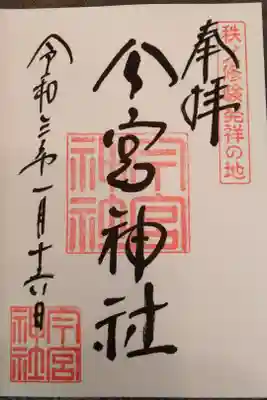 秩父修験発祥の地
奉拝
今宮神社
令和三年一月十六日
今宮
神社
今宮
神社